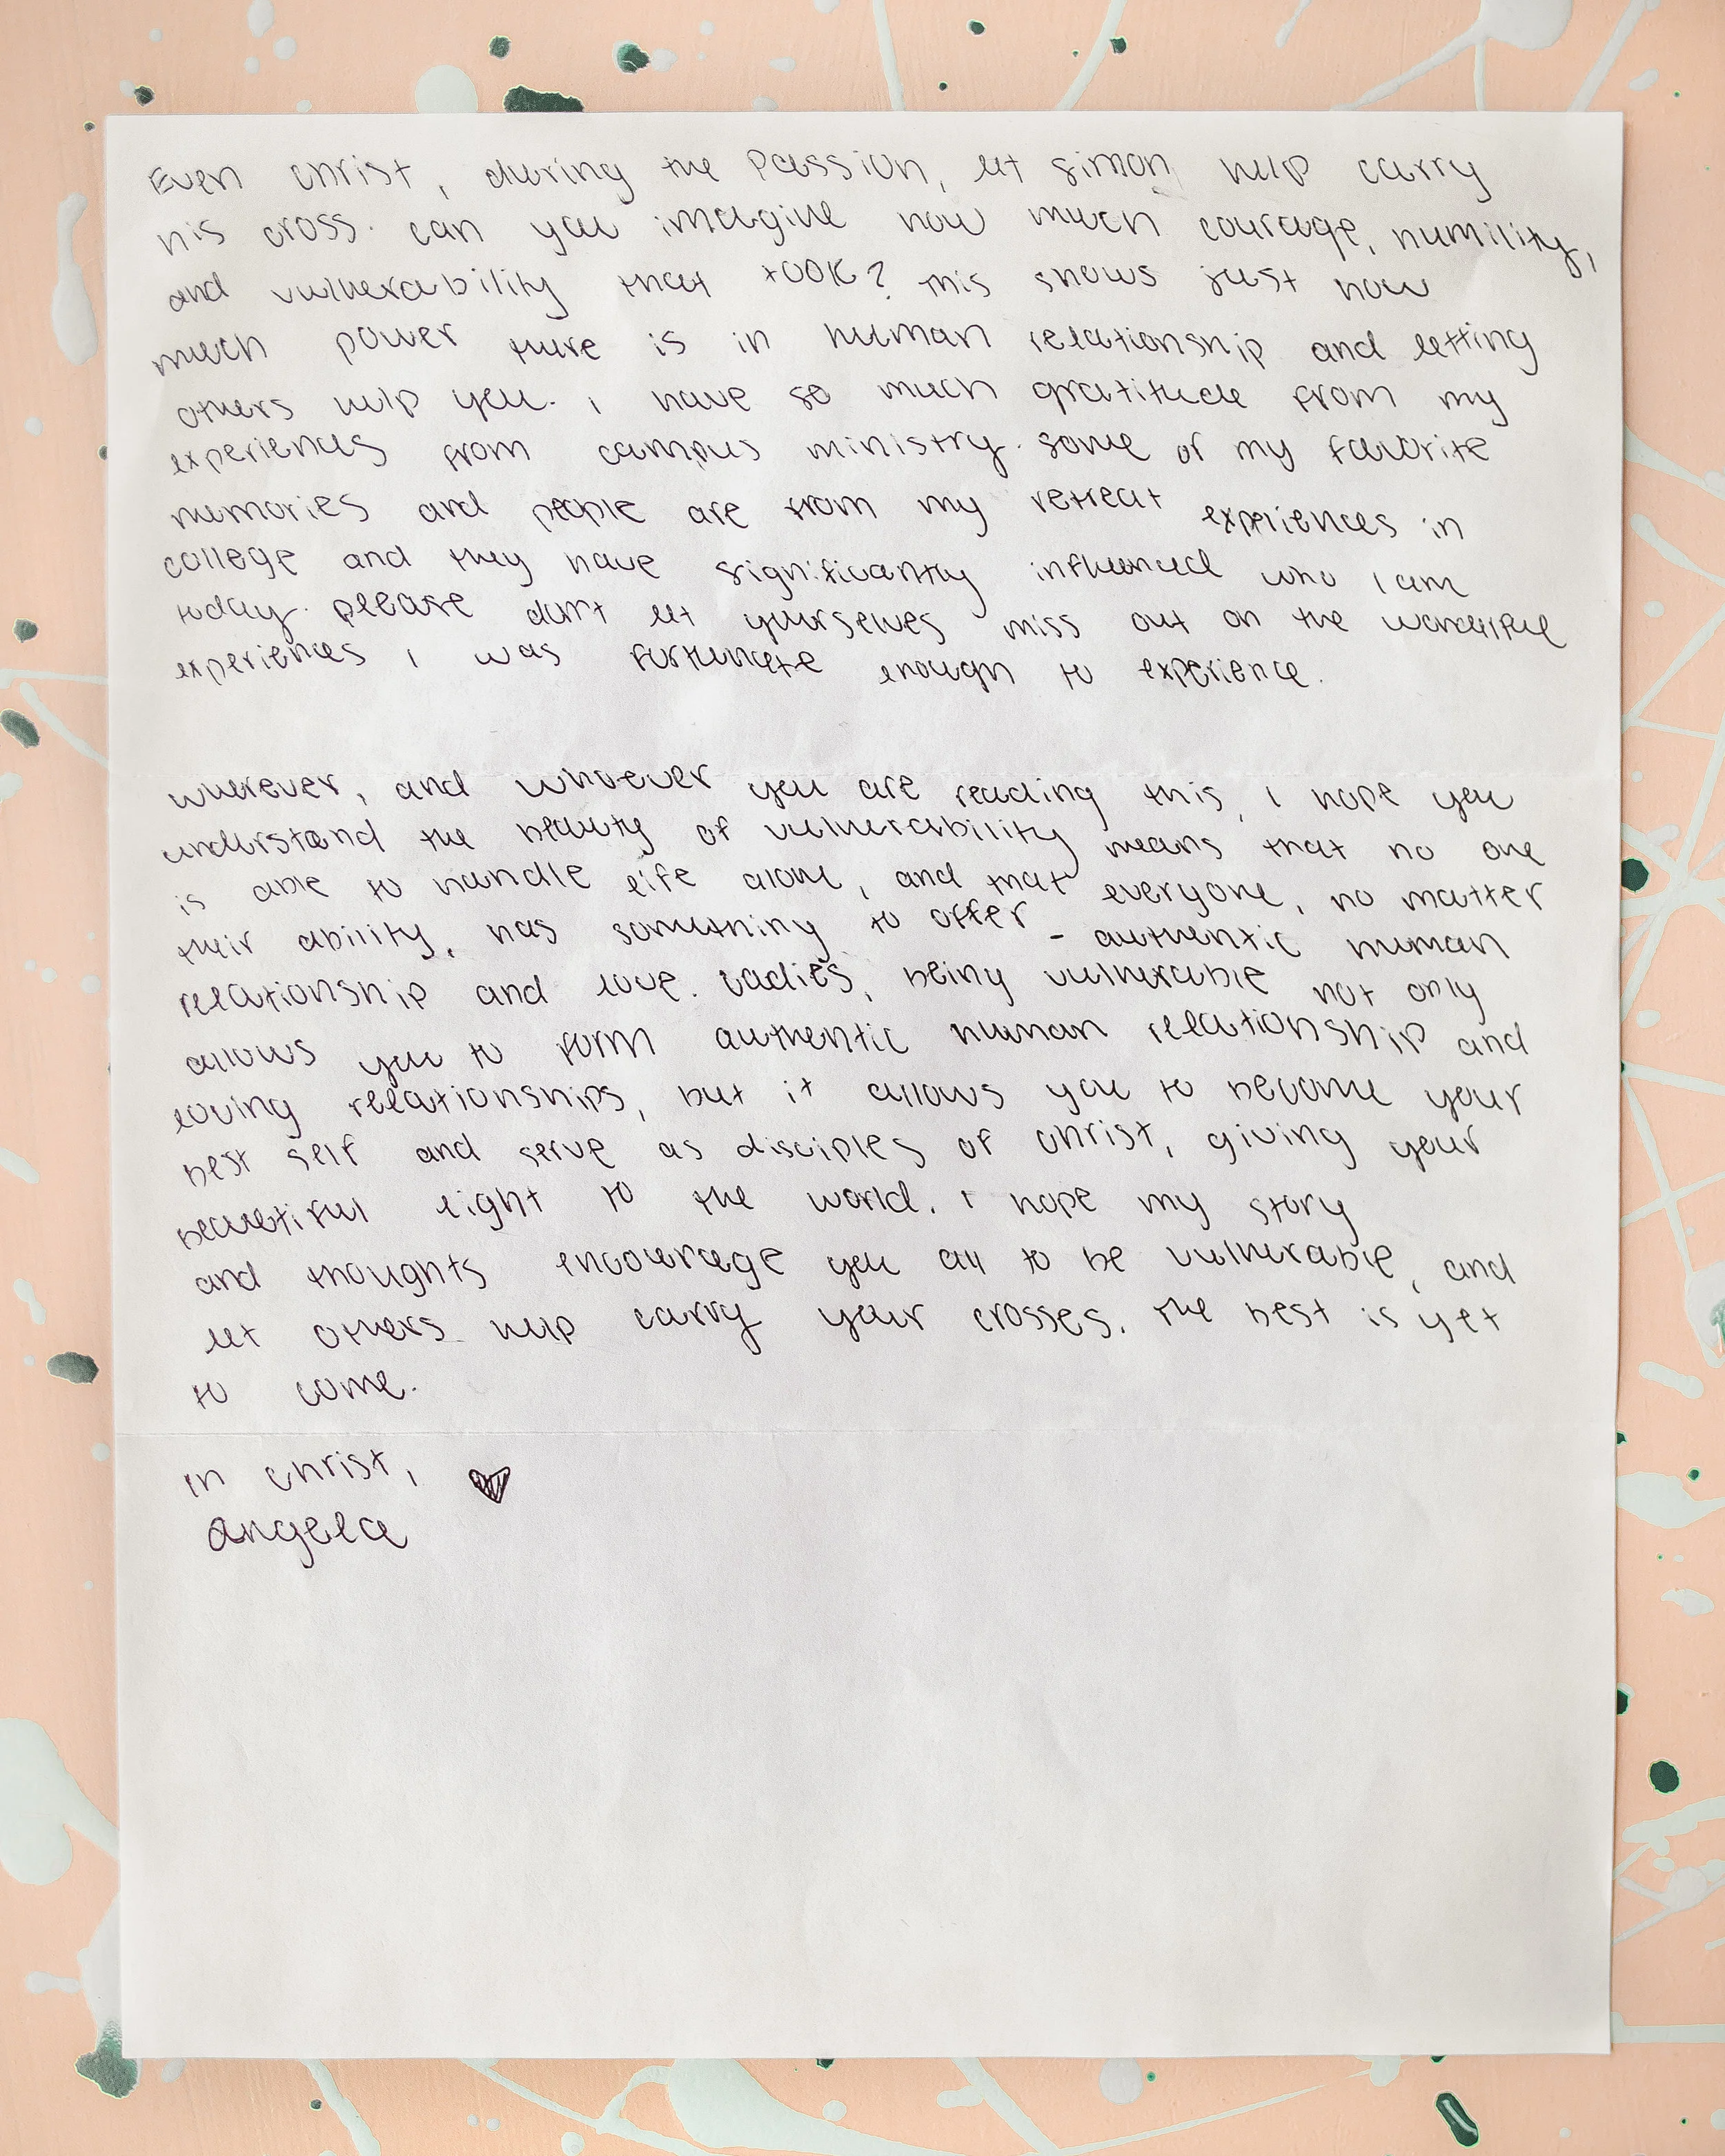 Even Christ, during the Passion, let Simon help carry
his cross. can you imagine how much courage, humility,
and vulnerability that took? This shows just how
much power there is in human relationship and letting
others help you. I have so much gratitude from my
experiences from campus ministry. some of my favorite
memories and people are from my retreat experiences in
college and they have significantly influenced who I am
today. please don't let yourselves miss out on the wonderful
experiences I was fortunate enough to experience.
wherever, and whoever you are reading this, I hope you
understand the beauty of vulnerability means that no one
is able to handle life alone, and that everyone, no matter
their ability, has something to offer - authentic human
relationship and love. Ladies, being vulnerable not only
allows you to form authentic human relationship and
loving relationships, but it allows you to become your
best self and serve as disciples of Christ, giving your
beautiful light to the world. I hope my story
and thoughts encourage you all to be vulnerable, and
let others help carry your crosses. The best is yet
to come.
In Christ,
Angela